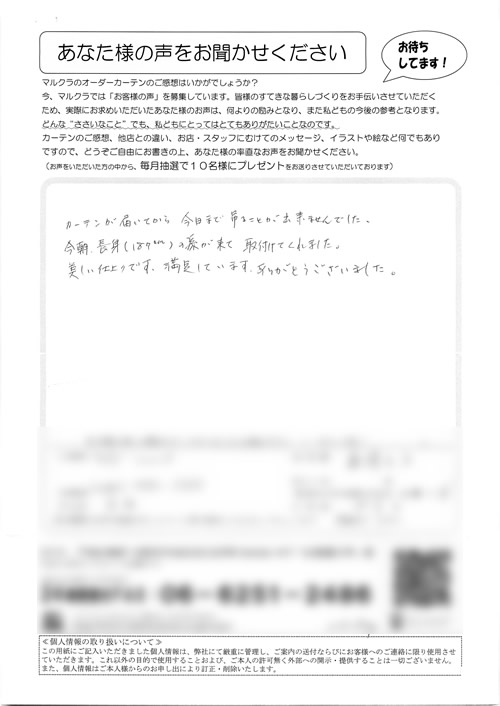 あなた様の声をお聞かせください
お待ち
してます！
マルクラのオーダーカーテンのご感想はいかがでしょうか？
今、マルクラでは「お客様の声」を募集しています。皆様のすてきな暮らしづくりをお手伝いさせていただく
ため、実際にお求めいただいたあなた様のお声は、何よりの励みとなり、また私どもの今後の参考となります。
どんな“ささいなこと”でも、私どもにとってはとてもありがたいことなのです。
カーテンのご感想、他店との違い、お店・スタッフにむけてのメッセージ、イラストや絵など何でもあり
ですので、どうぞご自由にお書きの上、あなた様の率直なお声をお聞かせください。
（お声をいただいた方の中から、毎月抽選で１０名様にプレゼントをお送りさせていただいております）
カーテンが届いてから 今日まで 吊ることが出来ませんでした。
今朝、長身(187cm)の孫が来て 取付けてくれました。
美しい仕上りです。満足しています。ありがとうございました。
06-6251-2486
≪個人情報の取り扱いについて≫
この用紙にご記入いただきました個人情報は、弊社にて厳重に管理し、ご案内の送付ならびにお客様へのご連絡に限り使用させ
ていただきます。これ以外の目的で使用することおよび、ご本人の許可無く外部への開示・提供することは一切ございません。
また、個人情報はご本人様からのお申し出により訂正・削除いたします。